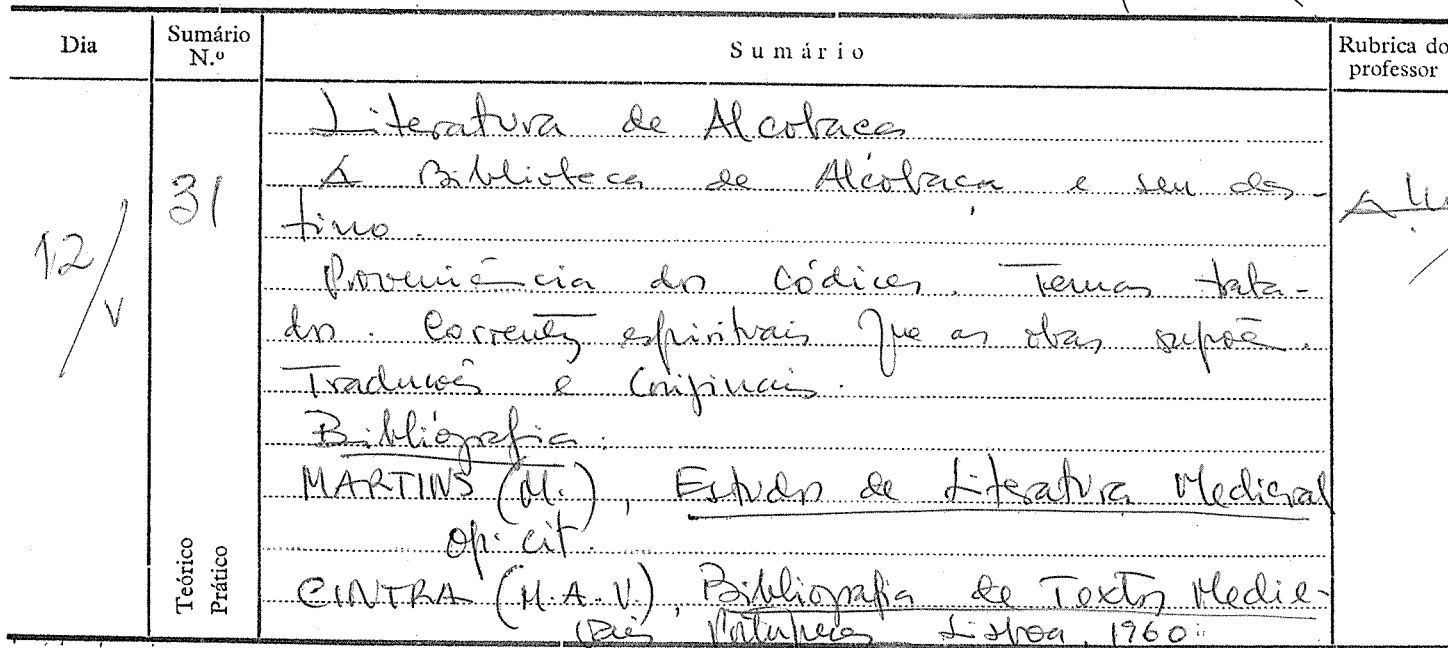 Dia
Sumário N.º
Sumário
Rubrica do professor
12/V
31
Teórico
Prático
Literatura de Alcobaça
A Biblioteca de Alcobaça e seu des-
tino.
Proveniência dos códices. Temas trata-
dos. Correntes espirituais que as obras supõe.
Traduções e Originais.
Bibliografia:
MARTINS (M.), Estudos de Literatura Medieval
op. cit.
CINTRA (M.A.V.), Bibliografia de Textos Medie-
vais Portugueses Lisboa, 1960.